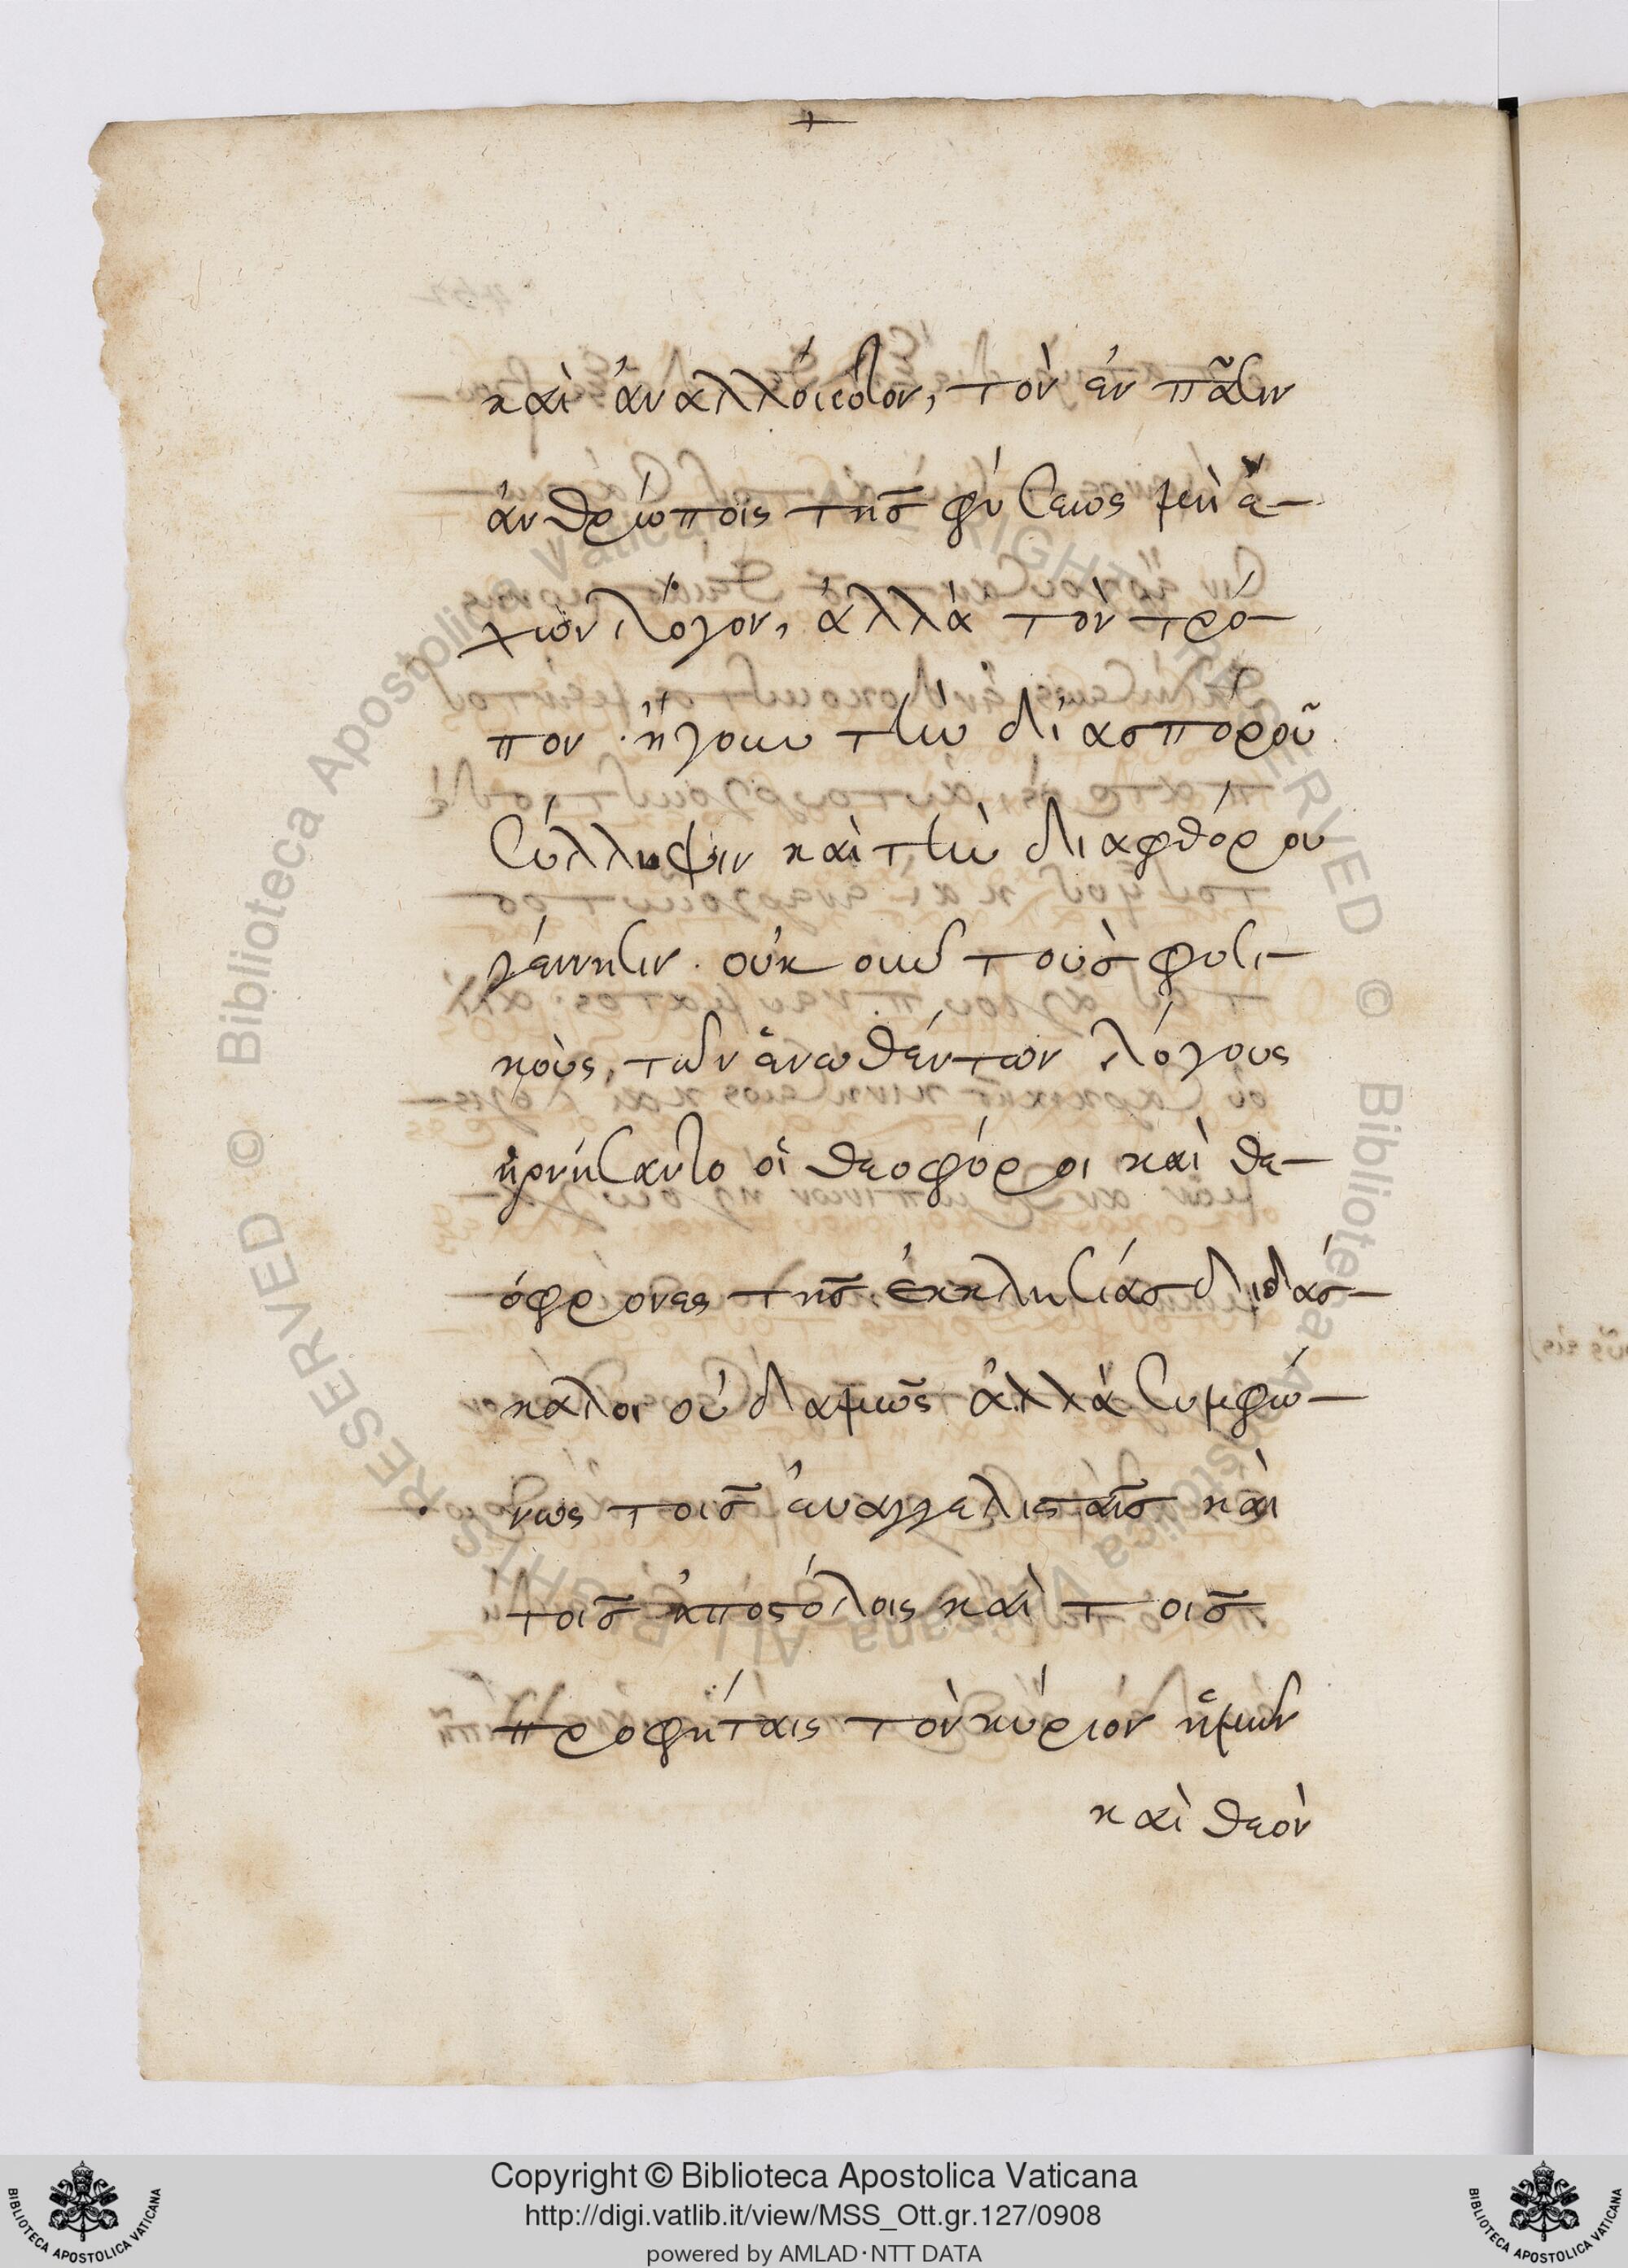 καὶ ἀναλλοίωτον, τὸν ἐν πᾶσιν
ἀνθρώποις τῆς φύσεως μὴ ἐ-
χων λόγον, ἀλλὰ τὸν τρό-
πον· ἤγουν τὴν δι' ασποροῦ
σύλληψιν καὶ τὴν διαφθόρου
γέννησιν. οὐκοῦν τοὺς φυσι-
κοὺς, τῶν ἑνωθέντων λόγους
ἠρνήσαντο οἱ θεοφόροι καὶ θε-
όφρονες τῆς ἐκκλησίας διδάσ-
καλοι οὐδαμῶς ἀλλὰ συμφώ-
νως τοῖς εὐαγγελισταῖς καὶ
τοῖς ἀποστόλοις καὶ τοῖς
προφήταις τὸν κύριον ἡμῶν
καὶ θεὸν
Copyright © Biblioteca Apostolica Vaticana
http://digi.vatlib.it/view/MSS_Ott.gr.127/0908
powered by AMLAD·NTT DATA
BIBLIOTECA APOSTOLICA VATICANA
BIBLIOTECA APOSTOLICA VATICANA